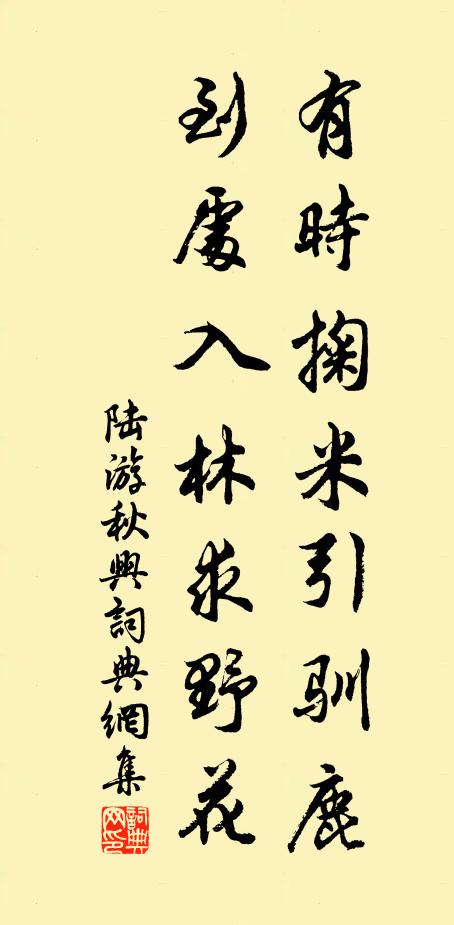 有時掬米引驯鹿
到處入林求野花
陆游秋興詞典網集
詞典網印